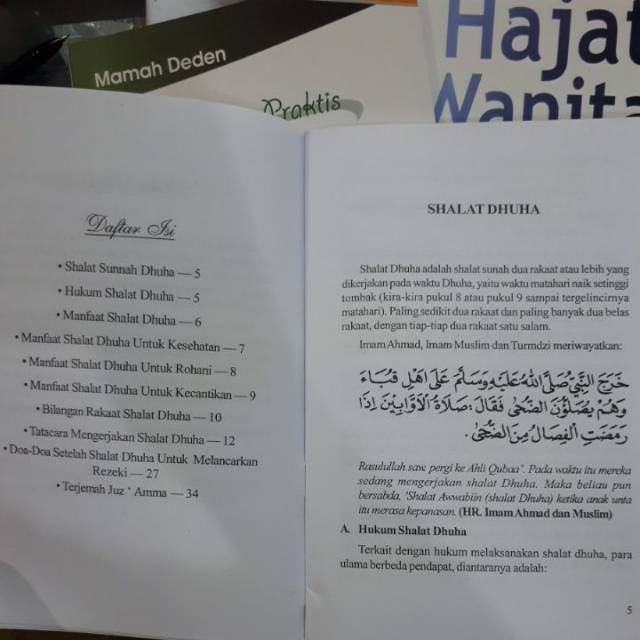 Mamah Deden
Praktis
Hajat
Wanita
Daftar Isi
• Shalat Sunnah Dhuha — 5
• Hukum Shalat Dhuha — 5
• Manfaat Shalat Dhuha — 6
• Manfaat Shalat Dhuha Untuk Kesehatan — 7
• Manfaat Shalat Dhuha Untuk Rohani — 8
• Manfaat Shalat Dhuha Untuk Kecantikan — 9
• Bilangan Rakaat Shalat Dhuha — 10
• Tatacara Mengerjakan Shalat Dhuha — 12
• Doa-Doa Setelah Shalat Dhuha Untuk Melancarkan
Rezeki — 27
• Terjemah Juz ' Amma — 34
SHALAT DHUHA
Shalat Dhuha adalah shalat sunah dua rakaat atau lebih yang
dikerjakan pada waktu Dhuha, yaitu waktu matahari naik setinggi
tombak (kira-kira pukul 8 atau pukul 9 sampai tergelincirnya
matahari). Paling sedikit dua rakaat dan paling banyak dua belas
rakaat, dengan tiap-tiap dua rakaat satu salam.
Imam Ahmad, Imam Muslim dan Turmdzi meriwayatkan:
خَرَجَ النَّبِيُّ صَلَّى اللهُ عَلَيْهِ وَسَلَّمَ عَلَى اَهْلِ قُبَاءَ
وَهُمْ يُصَلُّوْنَ الضُّحَى فَقَالَ: صَلَاةُ الْاَوَّابِيْنَ اِذَا
رَمَضَتِ الْفِصَالُ مِنَ الضُّحَى.
Rasulullah saw. pergi ke Ahli Qubaa'. Pada waktu itu mereka
sedang mengerjakan shalat Dhuha. Maka beliau pun
bersabda, 'Shalat Awwabiin (shalat Dhuha) ketika anak unta
itu merasa kepanasan. (HR. Imam Ahmad dan Muslim)
A. Hukum Shalat Dhuha
Terkait dengan hukum melaksanakan shalat dhuha, para
ulama berbeda pendapat, diantaranya adalah:
5